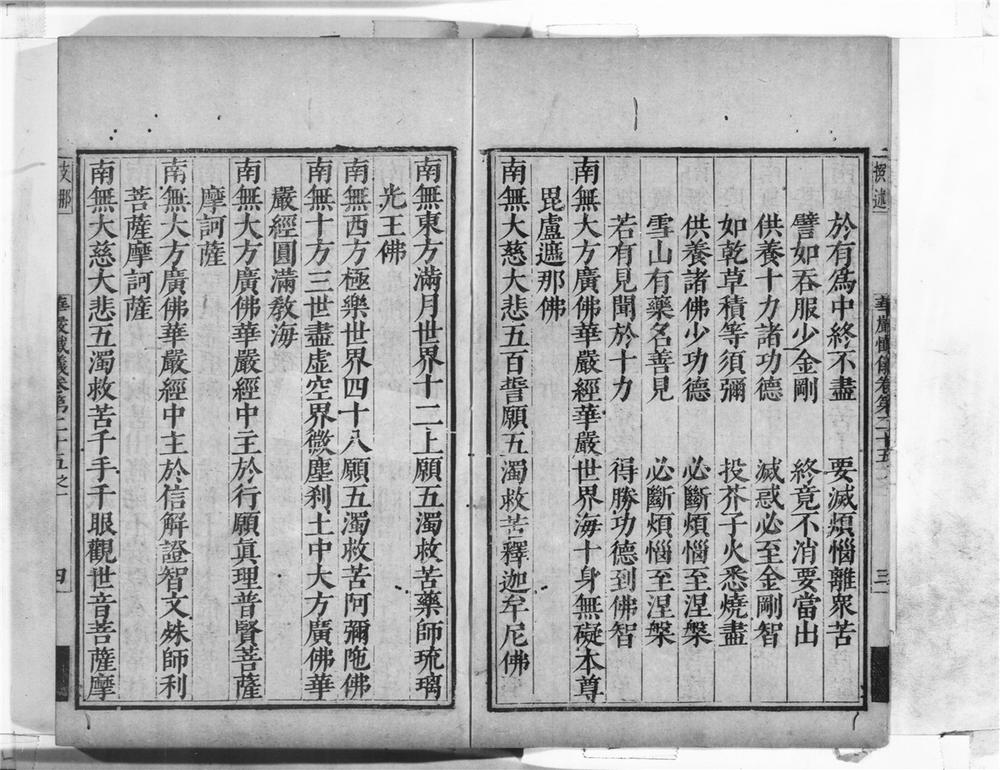 於有爲中終不盡　要滅煩惱離衆苦
譬如吞服少金剛　終竟不消要當出
供養十力諸功德　滅惑必至金剛智
如乾草積等須彌　投芥子火悉燒盡
供養諸佛少功德　必斷煩惱至涅槃
雪山有藥名善見　必斷煩惱至涅槃
若有見聞於十力　得勝功德到佛智
南無大方廣佛華嚴經華嚴世界海十身無礙本尊
毘盧遮那佛
南無大慈大悲五百誓願五濁救苦釋迦牟尼佛
三
南無東方滿月世界十二上願五濁救苦藥師琉璃
光王佛
南無西方極樂世界四十八願五濁救苦阿彌陁佛
南無十方三世盡虛空界微塵刹土中大方廣佛華
嚴經圓滿敎海
南無大方廣佛華嚴經中主於行願眞理普賢菩薩
摩訶薩
南無大方廣佛華嚴經中主於信解證智文殊師利
菩薩摩訶薩
南無大慈大悲五濁救苦千手千眼觀世音菩薩摩
華嚴懺儀卷第二十五之一
四